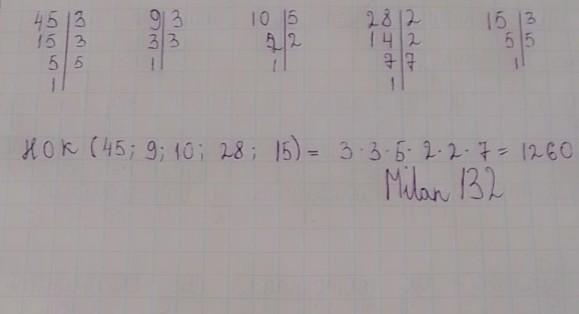 45|3 9|3 10|5 28|2 15|3
15|3 3|3 2|2 14|2 5|5
5|5 1| 1| 7|7 1|
1| 1|
НОК (45; 9; 10; 28; 15) = 3·3·5·2·2·7 = 1260
Milan 132